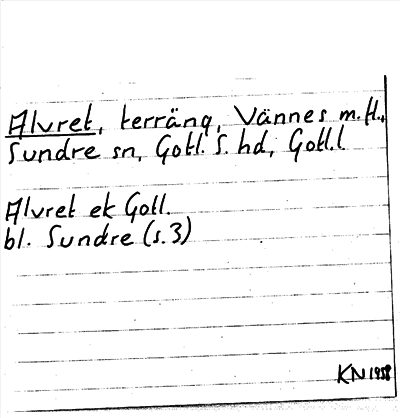 Alvret, terräng, Vännes m.fl.,
Sundre sn, Gotl. S. hd, Gotl. l
Alvret ek Gotl.
bl. Sundre (s. 3)
KN 1958